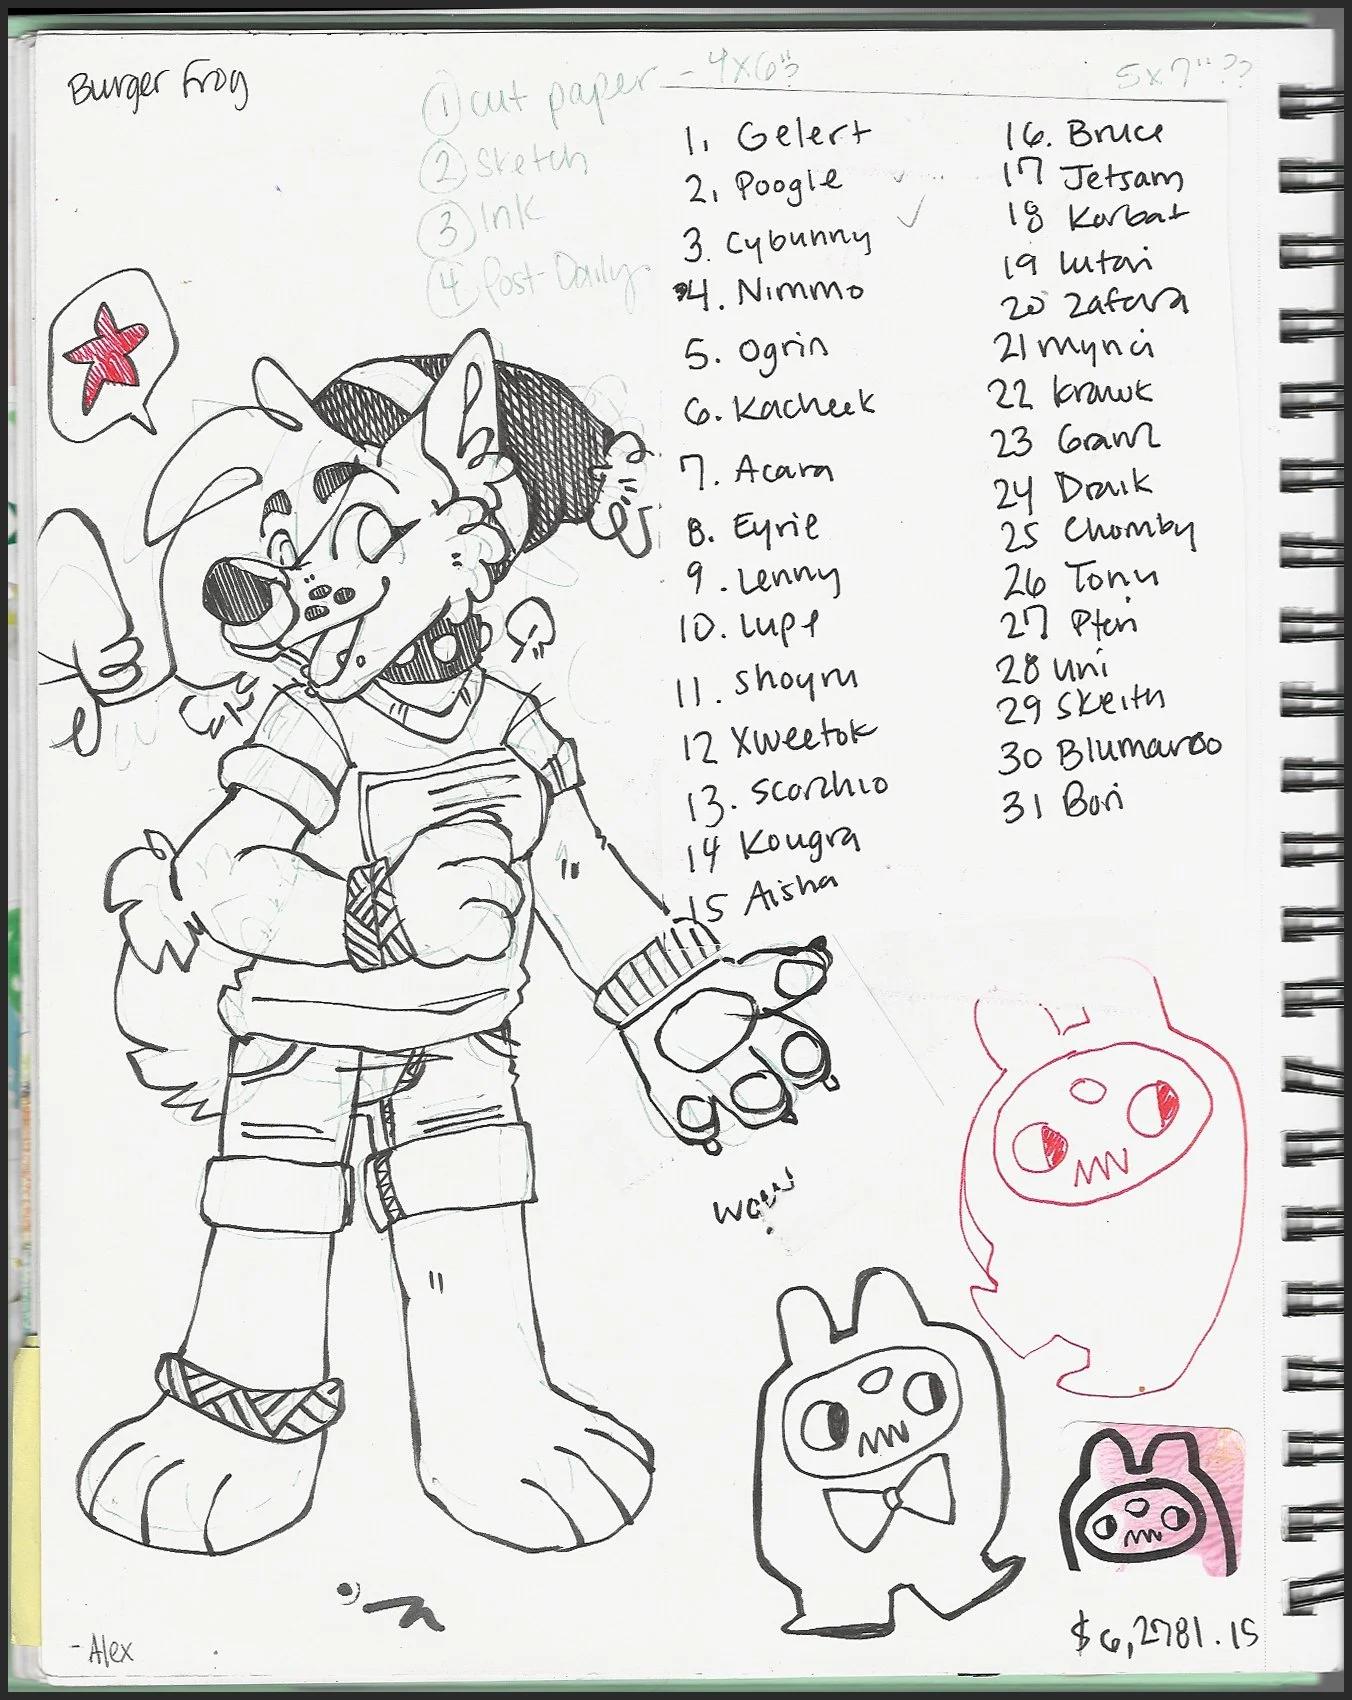 Burger Frog
① cut paper - 4x6"?
5x7"??
② Sketch
③ Ink
④ Post Daily
1. Gelert
2. Poogle
3. Cybunny
4. Nimmo
5. Ogrin
6. Kacheek
7. Acara
8. Eyrie
9. Lenny
10. Lupe
11. Shoyru
12 Xweetok
13. Scorchio
14 Kougra
15 Aisha
16. Bruce
17 Jetsam
18 Korbat
19 Lutari
20 Zafara
21 Mynci
22 Krawk
23 Grarrl
24 Draik
25 Chomby
26 Tonu
27 Pteri
28 Uni
29 Skeith
30 Blumaroo
31 Bori
wow
$6,2781.15
-Alex